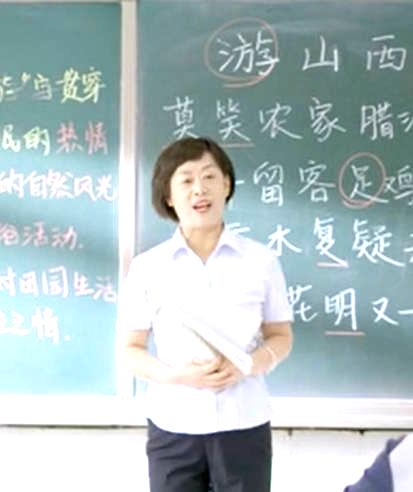 贯穿
民的热情
的自然风光
俗活动.
对田园生活
之情.
游山西
莫笑农家腊
留客足鸡
水复疑
花明又一